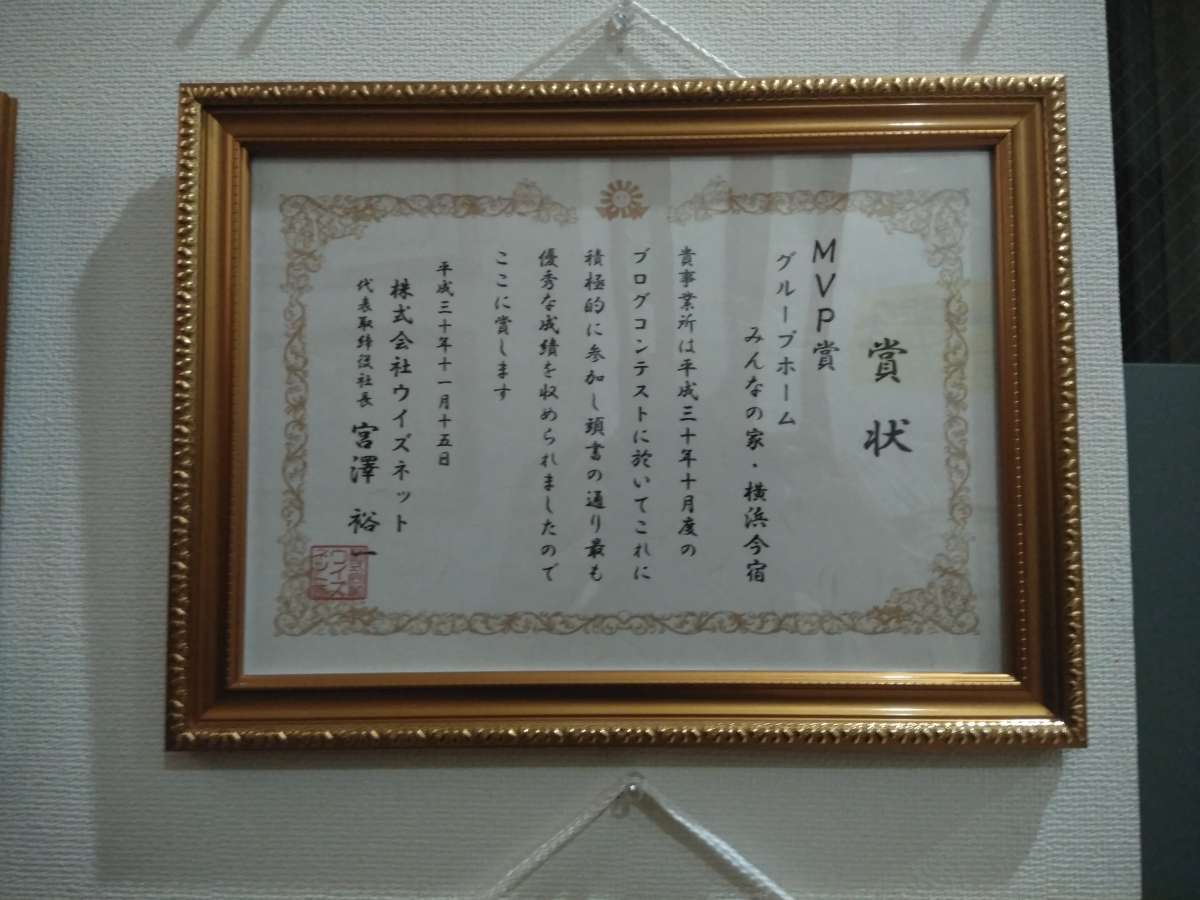 賞状
MVP賞
グループホーム
みんなの家・横浜今宿
貴事業所は平成三十年十月度の
ブログコンテストに於いてこれに
積極的に参加し頭書の通り最も
優秀な成績を収められましたので
ここに賞します
平成三十年十一月十五日
株式会社ウイズネット
代表取締役社長 宮澤 裕一